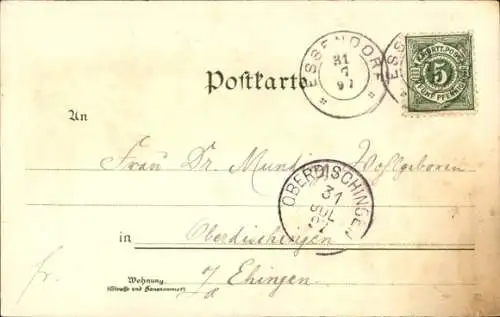 ESSENDORF
31
7
97
K.WÜRTT.POST
5
FÜNF PFENNIG
Postkarte
An
Frau Dr. Wohlgeboren
OBERDISCHINGEN
31
JUL
97
in Oberdischingen
Wohnung
(Straße und Hausnummer)
Ehingen
fr.